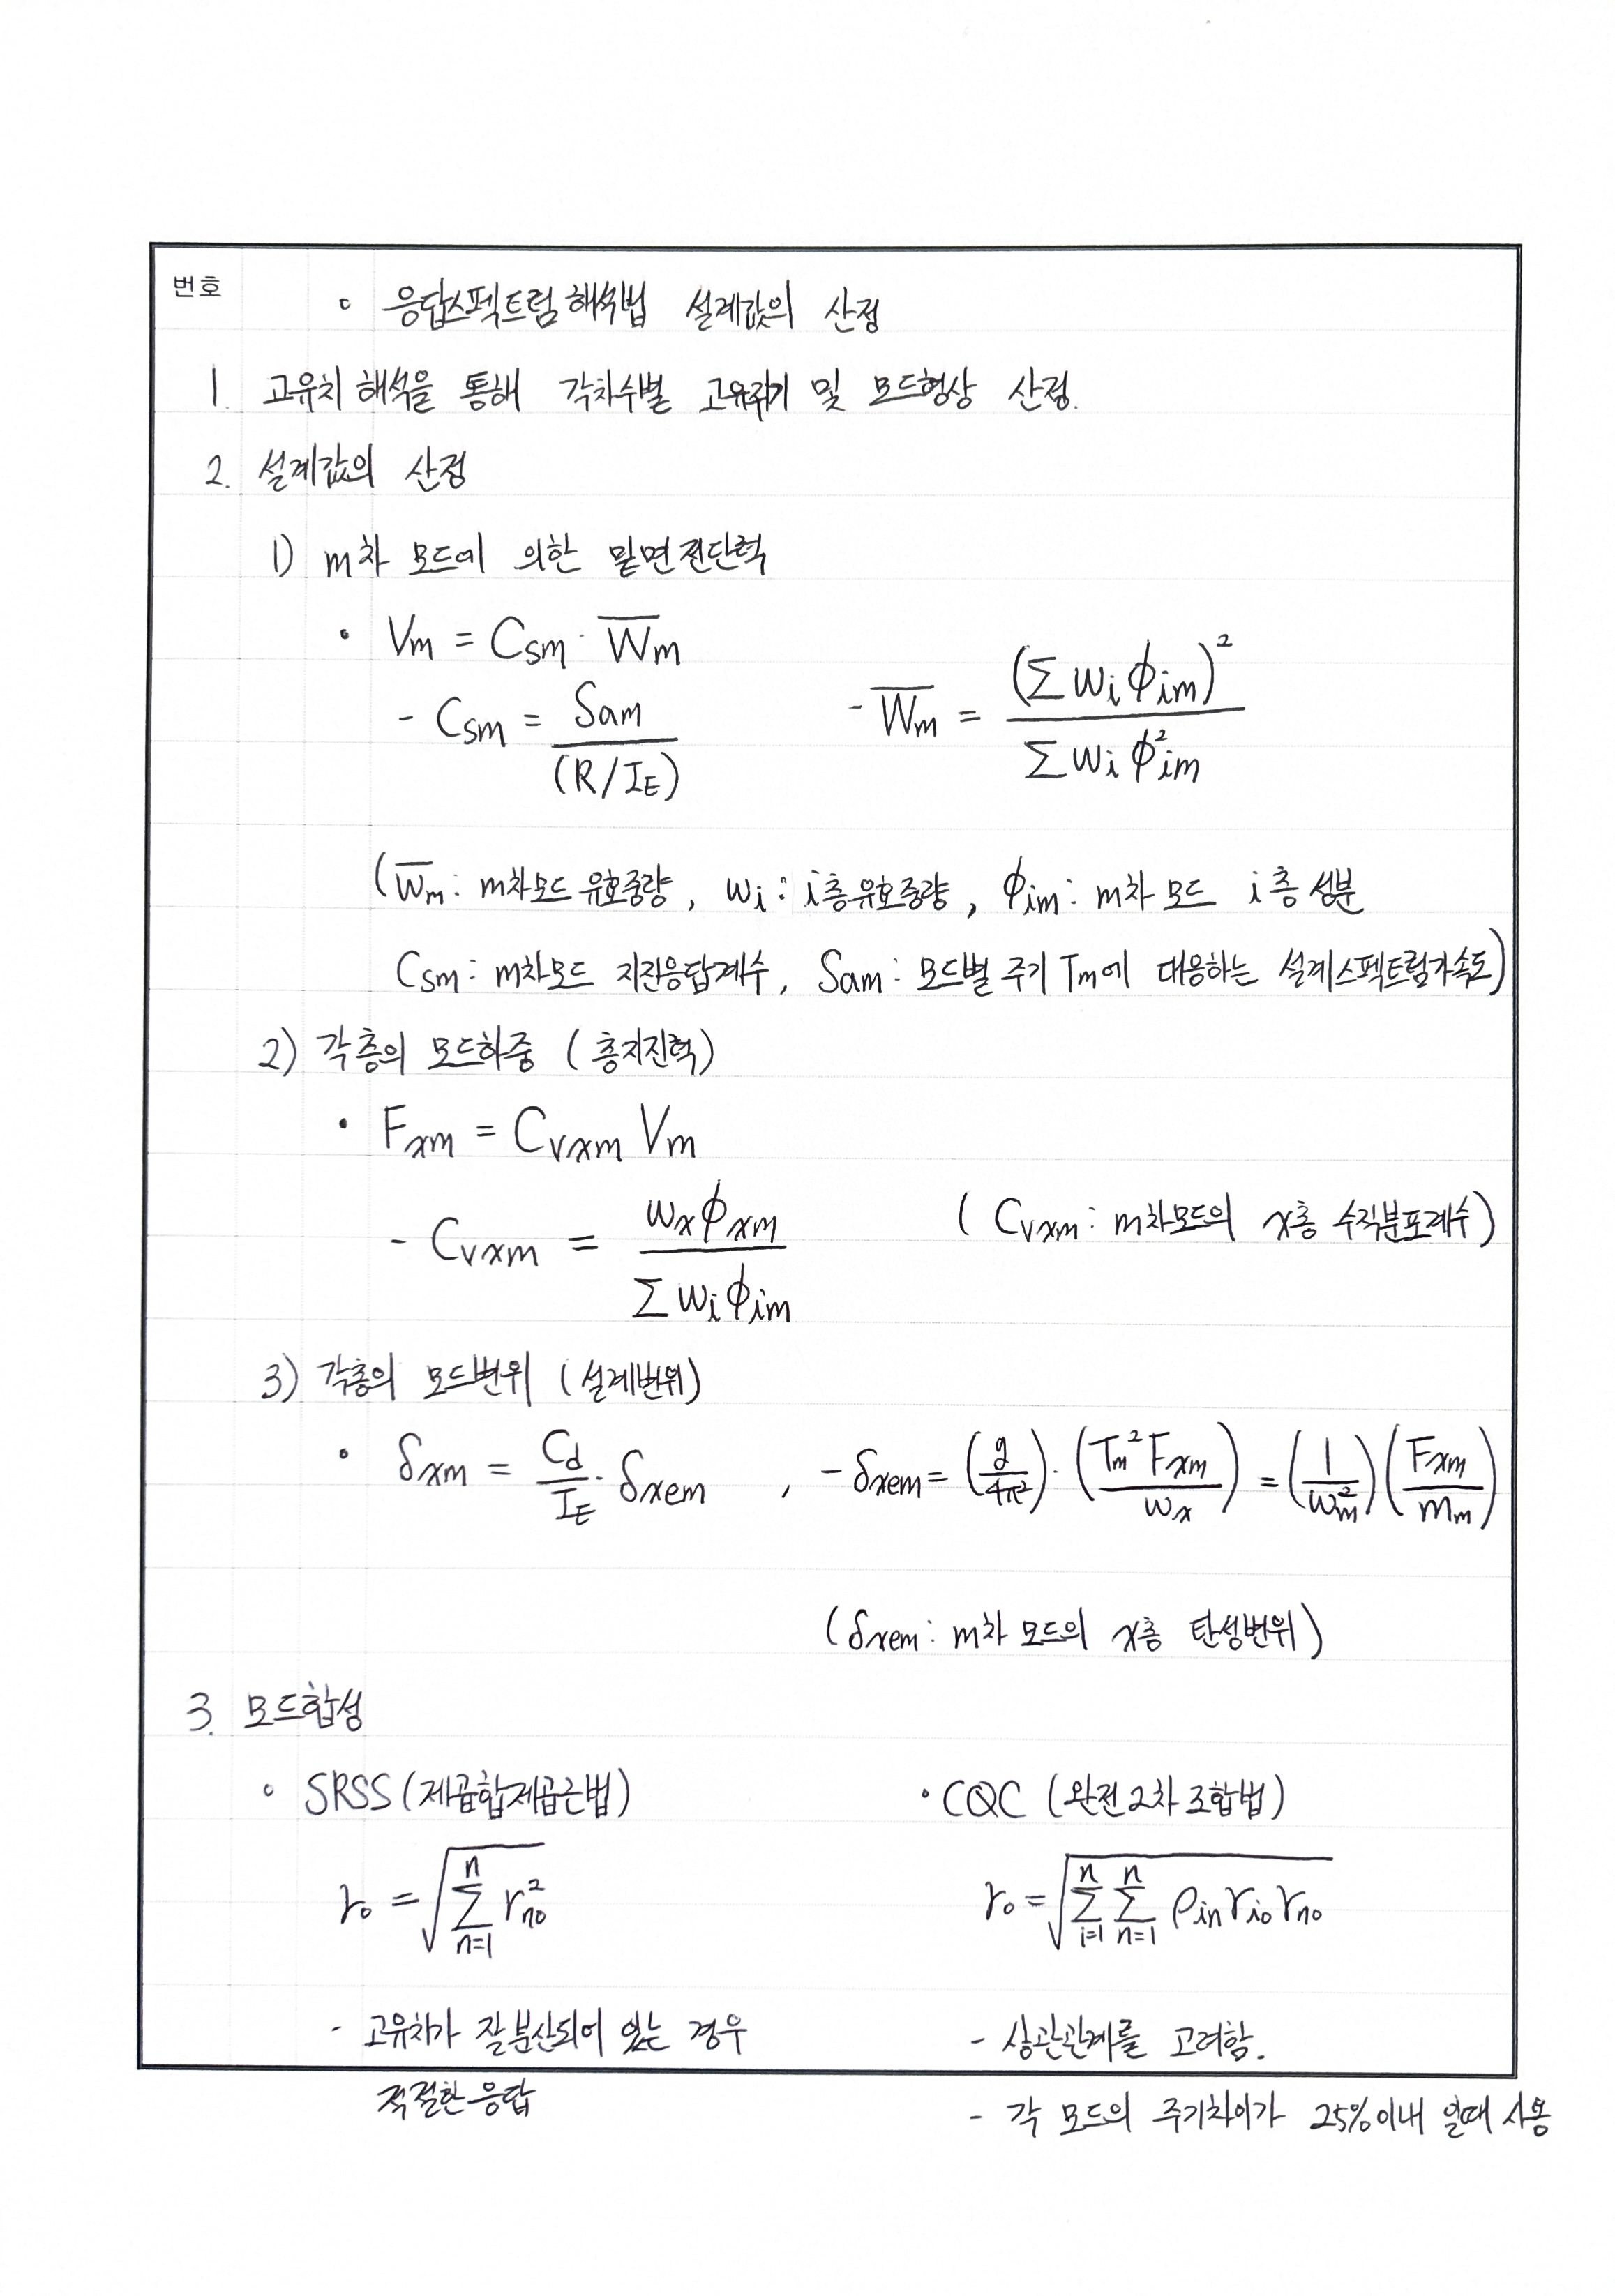 번호
∘ 응답스펙트럼해석법 설계값의 산정
1. 고유치 해석을 통해 각차수별 고유주기 및 모드형상 산정.
2. 설계값의 산정
1) m차 모드에 의한 밑면전단력
• Vm = Csm · W̅m
- Csm = Sam / (R/IE) - W̅m = (Σ wi ϕim)² / Σ wi ϕ²im
(W̅m : m차모드 유효중량, wi : i층유효중량, ϕim : m차 모드 i층 성분
Csm : m차모드 지진응답계수, Sam : 모드별 주기 Tm에 대응하는 설계스펙트럼가속도)
2) 각층의 모드하중 (층지진력)
• Fxm = Cvxm Vm
- Cvxm = wxϕxm / Σ wiϕim (Cvxm : m차모드의 x층 수직분포계수)
3) 각층의 모드변위 (설계변위)
• δxm = Cd/IE · δxem , - δxem = (g/4π²) · (Tm² Fxm / wx) = (1/ωm²)(Fxm/mm)
(δxem : m차 모드의 x층 탄성변위)
3. 모드합성
∘ SRSS (제곱합제곱근법) • CQC (완전2차조합법)
ro = √(Σ(n=1→n) r²no) ro = √(Σ(i=1→n) Σ(n=1→n) ρin rio rno)
- 고유치가 잘분산되어 있는 경우 - 상관관계를 고려함.
적절한응답 - 각 모드의 주기차이가 25%이내 일때 사용